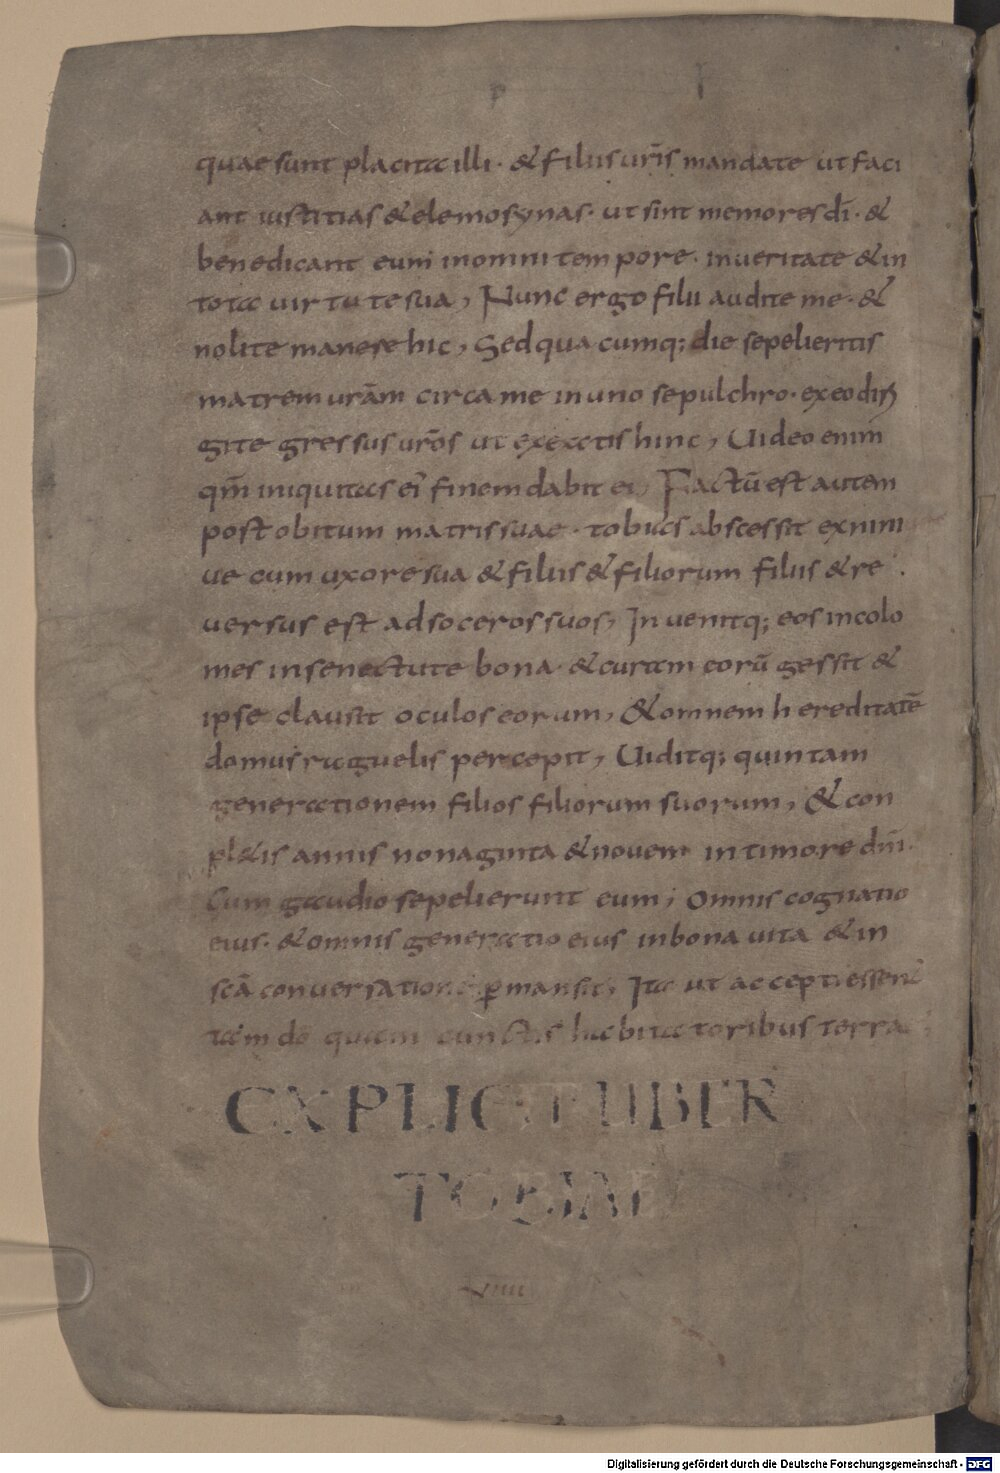 quae sunt placita illi · & filiis ur̄is mandate ut faci
ant iustitias & elemosynas · ut sint memores dī · &
benedicant eum in omni tempore · in ueritate & in
tota uirtute sua, Nunc ergo filii audite me · &
nolite manere hic, Sed quacumq; die sepelieritis
matrem urām circa me in uno sepulchro · ex eo diri
gite gressus urōs ut exeatis hinc, Uideo enim
qm̄ iniquitas ei' finem dabit ei, Factū est autem
post obitum matris suae · tobias abscessit ex nini
ue cum uxore sua & filiis & filiorum filiis & re
uersus est ad soceros suos, Inuenitq; eos incolo
mes in senectute bona · & curam eorū gessit &
ipse clausit oculos eorum, & omnem hereditatē
domus raguelis percepit, Uiditq; quintam
generationem filios filiorum suorum, & con
pl&is annis nonaginta & nouem in timore dn̄i.
Cum gaudio sepelierunt eum; Omnis cognatio
eius · & omnis generatio eius in bona uita & in
scā conuersatione ꝑmansit, Ita ut accepti essent
tam dō quam cunctis habitatoribus terrae
EXPLICIT LIBER
TOBIAE
VIIII
Digitalisierung gefördert durch die Deutsche Forschungsgemeinschaft - DFG